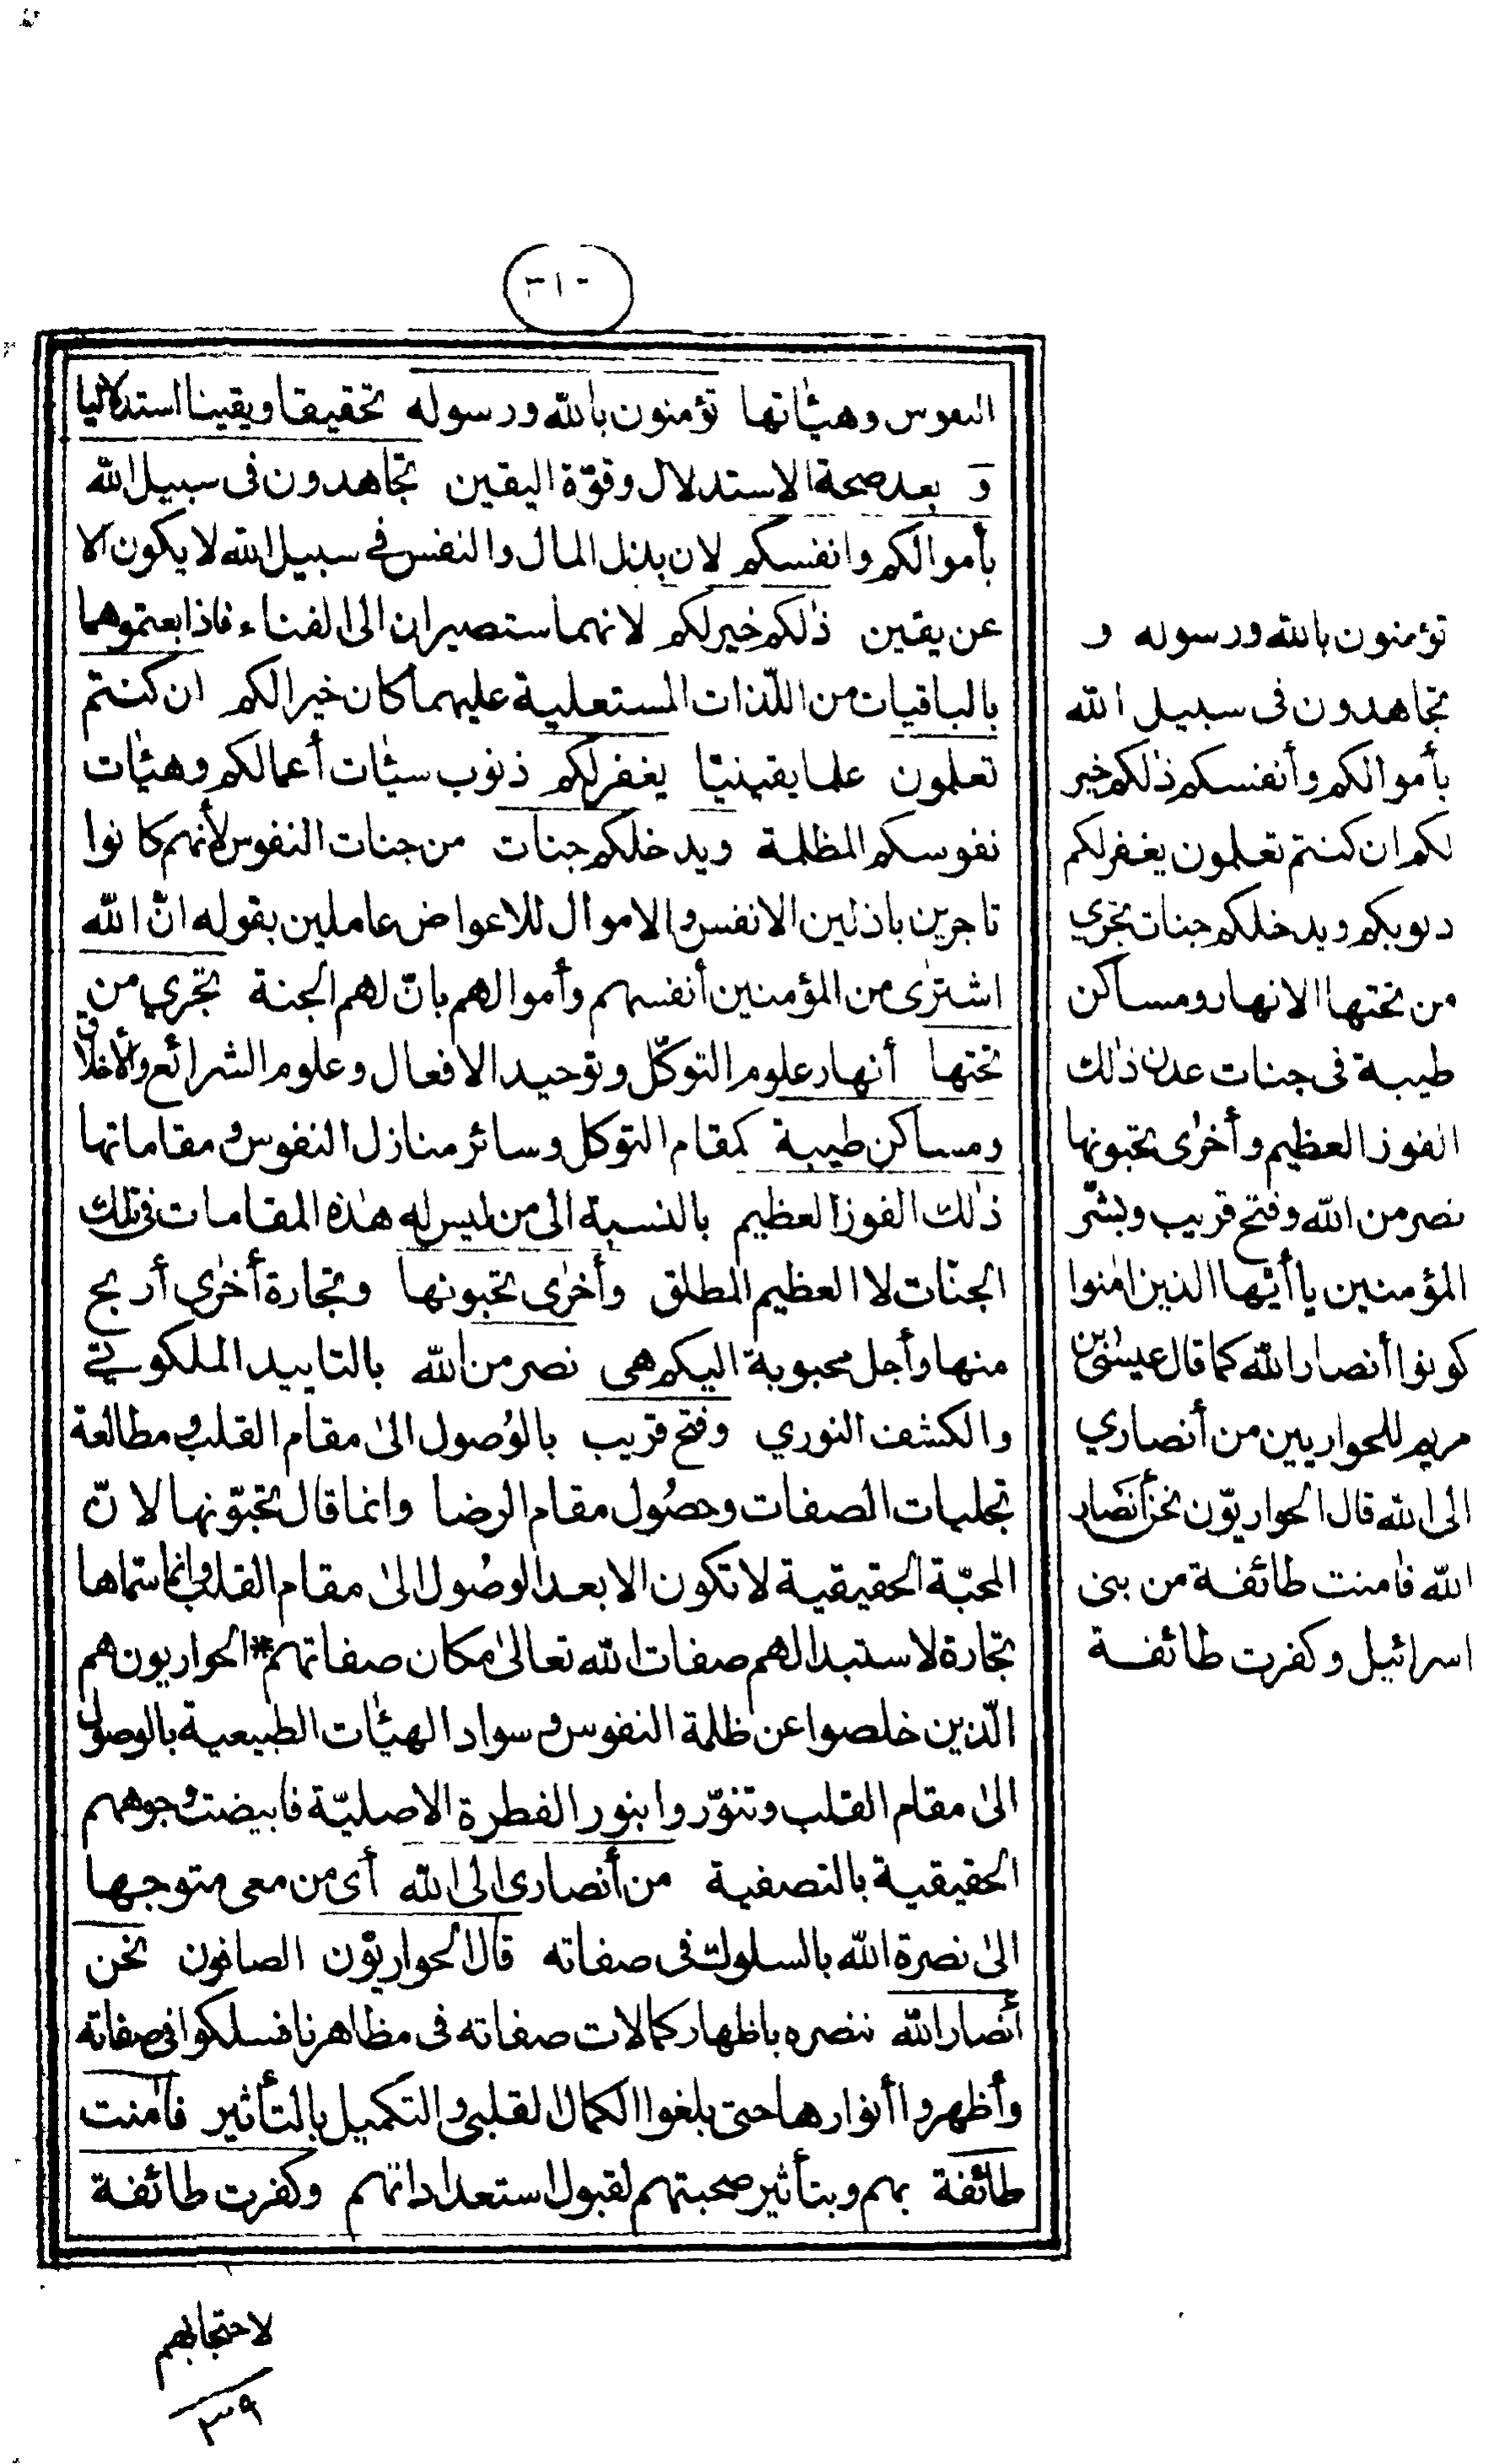 ٣١٠
النفوس وهيٰاتها تؤمنون بالله ورسوله تحقيقا ويقينا استدلاليا
وَ بعد صحة الاستدلال وقوّة اليقين تجاهدون فى سبيل الله
بأموالكم وانفسكم لان بذل المال والنفس فى سبيل الله لا يكون الا
عن يقين ذٰلكم خير لكم لانهما ستصيران الى الفناء فاذا بعتموهما
بالباقيات من اللّذات المستعلية عليهما كان خيرا لكم ان كنتم
تعلمون علما يقينيّا يغفر لكم ذنوب سيٰات أعمالكم وهيٰات
نفوسكم المظلمة ويدخلكم جنات من جنات النفوس لأنهم كانوا
تاجرين باذلين الانفس والاموال للاعواض عاملين بقوله انّ الله
اشترٰى من المؤمنين أنفسهم وأموالهم بانّ لهم الجنة تجري من
تحتها أنهار علوم التوكّل وتوحيد الافعال وعلوم الشرائع والأخلاق
ومساكن طيبة كمقام التوكل وسائر منازل النفوس ومقاماتها
ذٰلك الفوز العظيم بالنسبة الى من ليس له هذه المقامات فى تلك
الجنّات لا العظيم المطلق وأخرٰى تحبونها وتجارة أخرٰى أربح
منها وأجل محبوبة اليكم هى نصر من الله بالتاييد الملكوتي
والكشف النوري وفتح قريب بالوُصول الىٰ مقام القلب ومطالعة
تجليات الصفات وحصُول مقام الرضا وانما قال تحبّونها لانّ
المحبّة الحقيقية لا تكون الا بعد الوصُول الىٰ مقام القلب وانما سمّاها
تجارة لاستبدالهم صفات الله تعالىٰ مكان صفاتهم * الحواريون هم
الّذين خلصوا عن ظلمة النفوس وسواد الهيٰات الطبيعية بالوصول
الىٰ مقام القلب وتنوّروا بنور الفطرة الاصليّة فابيضت وجوههم
الحقيقية بالتصفية من أنصارى الى الله أى من معى متوجها
الىٰ نصرة الله بالسلوك فى صفاته قال الحواريّون الصافون نحن
أنصار الله ننصره باظهار كمالات صفاته فى مظاهرنا فسلكوا فى صفاته
وأظهروا أنوارها حتى بلغوا الكمال القلبى والتكميل بالتأثير فاٰمنت
طائفة بهم وبتأثير صحبتهم لقبول استعداداتهم وكفرت طائفة
تؤمنون بالله ورسوله و
تجاهدون فى سبيل الله
بأموالكم وأنفسكم ذٰلكم خير
لكم ان كنتم تعلمون يغفر لكم
ذنوبكم ويدخلكم جنات تجري
من تحتها الانهار ومساكن
طيبة فى جنات عدن ذٰلك
الفوز العظيم وأخرٰى تحبونها
نصر من الله وفتح قريب وبشّر
المؤمنين يا أيّها الذين اٰمنوا
كونوا أنصار الله كما قال عيسٰى بن
مريم للحواريين من أنصاري
الى الله قال الحواريّون نحن أنصار
الله فاٰمنت طائفة من بنى
اسرائيل وكفرت طائفة
لاحتجابهم
٣٩